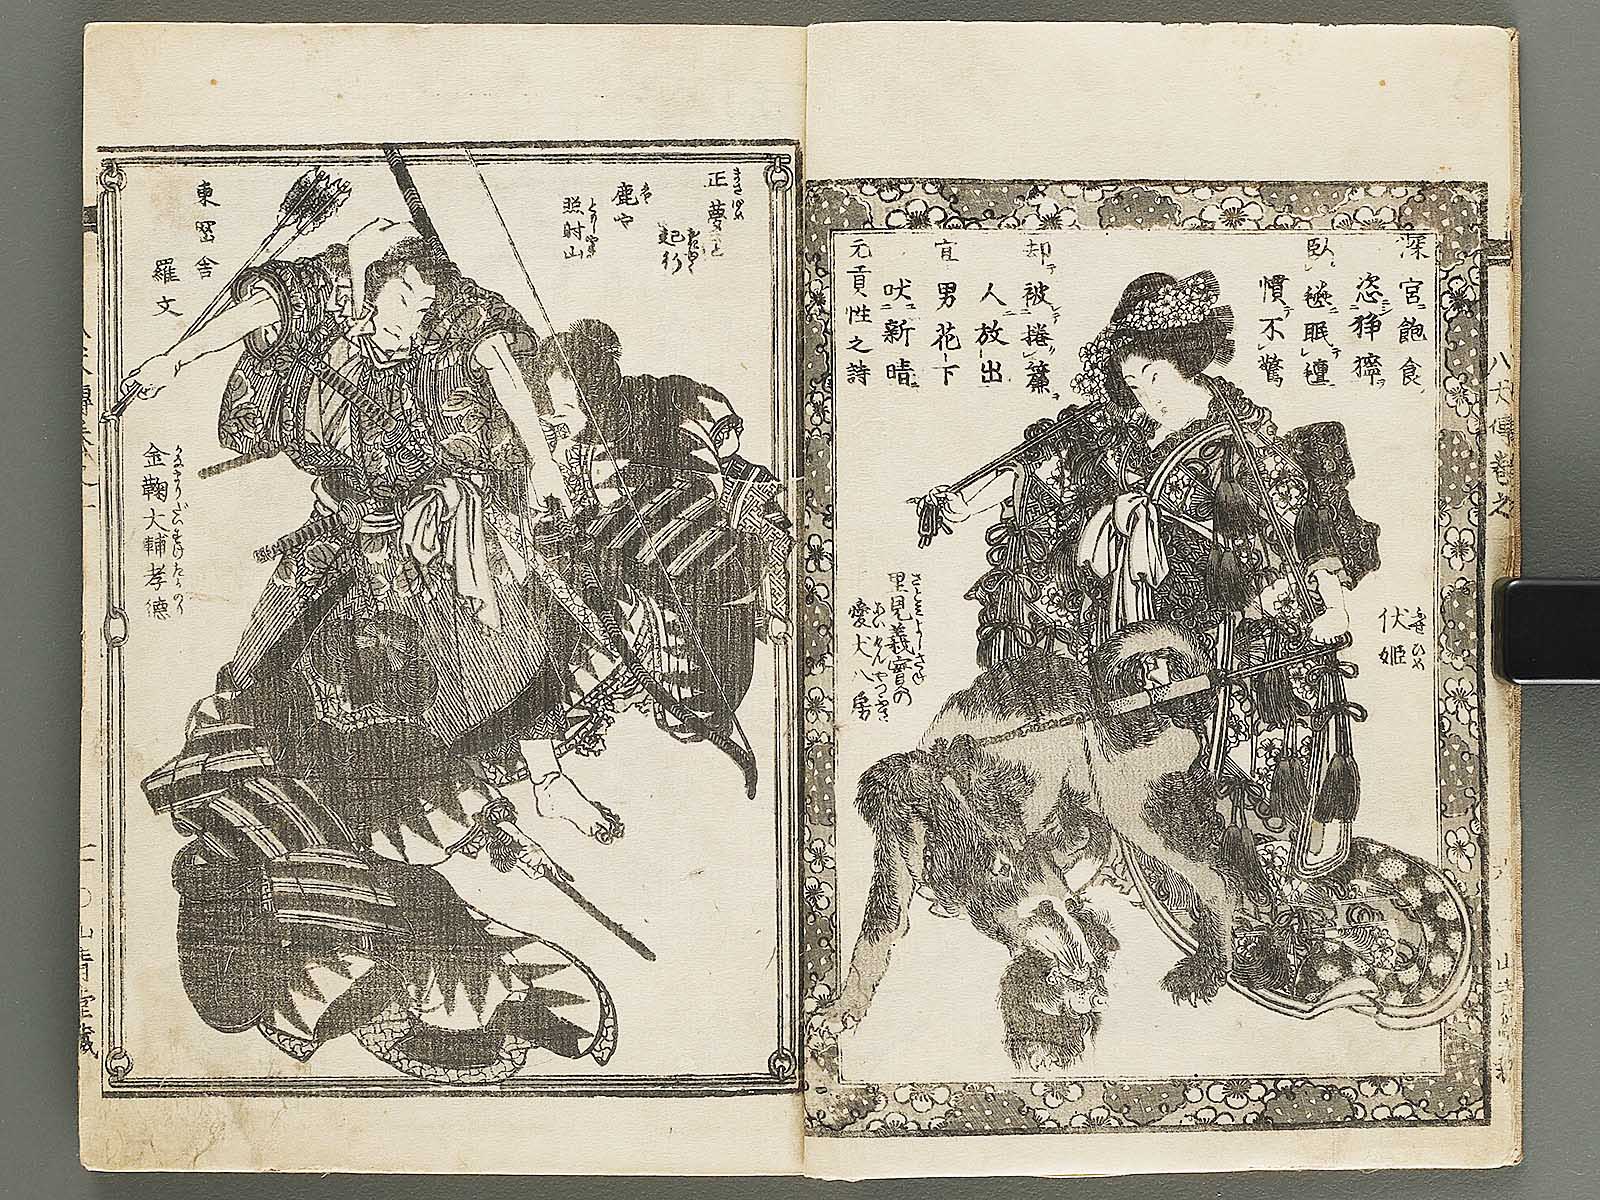 深宮飽食
恣狰獰
臥毯眠氊
慣不驚
却被捲簾
人放出
宜男花下
吠新晴
元貢性之詩
伏姫
ふせひめ
里見義實の
愛犬八房
八犬傳巻之
正夢と
起行
鹿や
照射山
東岡舎
羅文
金鞠大輔孝徳
山青堂藏